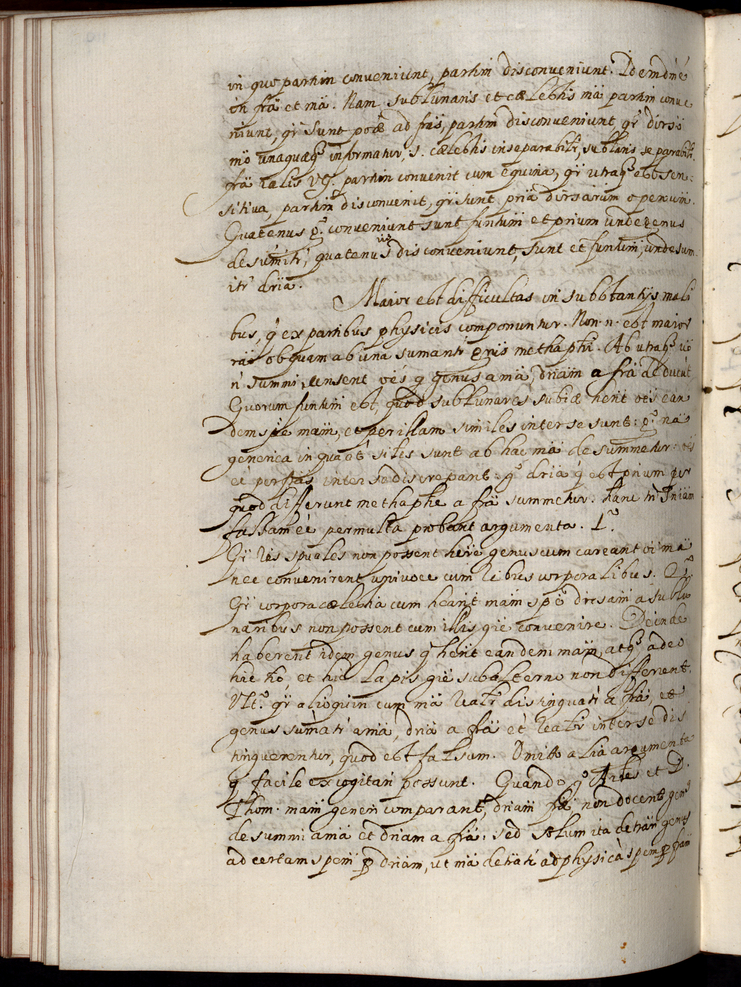 in quo partim conveniunt, partim disconveniunt. Idem dne
in frã et mã. Nam sublunaris et cælestis mã partim conve
niunt, qr̃ sunt potẽ ad frãs, partim disconveniunt qr̃ diverso
mõ unaquæq̃ informatur, s. cælestis inseparabili, sublũris separabili
frã talis partim convenit cum equina, qr̃ utraq̃ est sen:
sitiva, partim disconvenit, qr̃ sunt diversarum operũm.
Quatenus g.º conveniunt sunt funtm̃ et prium unde genus
desumitr̃, quatenus vẽ disconveniunt, sunt et funtm̃, unde sum
itr̃ driã.
Maior est difficultas in substantijs mãli
bus, q̃ ex partibus physicis componuntur. Non n. est maior
rãõ ob quam ab una sumantr̃ methaphci. Ab utraq̃ vẽ
nº sumni, censent oẽs q̃ genus a mã, driam a frã deducũt
Quorum funtm̃ est, quod sublunares subiæ hent oẽs ean
dem spẽ mam, et per illam similes inter se sunt: g.º nã
generica in qua oẽs siles sunt ab hac mã desummetur: oẽs
et per frãs inter se discrepant: g.º driã q̃ est prium per
quod differunt methaphe a frã summetur. hanc tñ sniam
falsam eẽ permulta probant argumenta. 1.º
Qr̃ rẽs spuales non possent hẽre genus cum careant oĩ mã
nec convenirent univoce cum rebus corporalibus. 2.º
Qr̃ corpora cælestia cum heant mam spẽ diversam a sublu
naribus non possent cum illis gñe convenire. Deinde
haberent idem genus q̃ hent eandem mam, atq̃ adeo
hic hõ et hic lapis gñe subalterno non different.
Ult.º qr̃ alioquin cum mã realr̃ distinguatr̃ a frã, et
genus sumatr̃ a mã, driã a frã et realr̃ inter se dis
tinguerentur, quod est falsum. Omitto alia argumenta
q̃ facile excogitari possunt. Quando g.º Arles et D.
Thom. mam generi comparant, driam frã non docent gen9
desummi a mã et driam a frã: sed solum ita detrãri genus
ad certam spem p driam, ut mã detrãtr̃ ad physicã spem p frãm